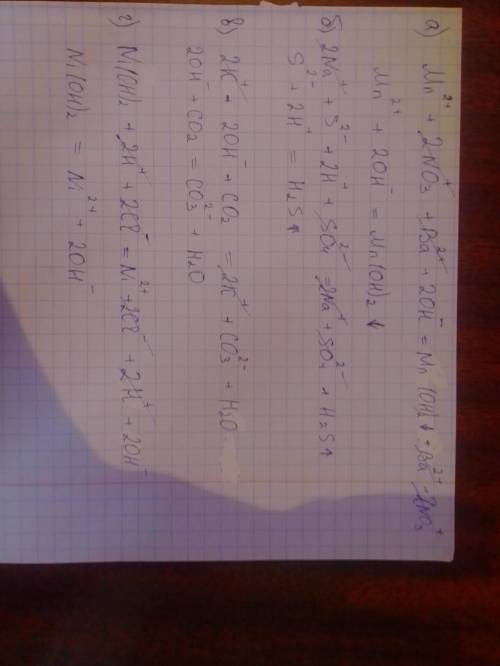 а) Mn²⁺ + 2NO₃⁺ + Ba²⁺ + 2OH⁻ = Mn(OH)₂↓ + Ba²⁺ + 2NO₃⁺
Mn²⁺ + 2OH⁻ = Mn(OH)₂↓
б) 2Na⁺ + S²⁻ + 2H⁺ + SO₄²⁻ = 2Na⁺ + SO₄²⁻ + H₂S↑
S²⁻ + 2H⁺ = H₂S↑
в) 2K⁺ + 2OH⁻ + CO₂ = 2K⁺ + CO₃²⁻ + H₂O
2OH⁻ + CO₂ = CO₃²⁻ + H₂O
г) Ni(OH)₂ + 2H⁺ + 2Cl⁻ = Ni²⁺ + 2Cl⁻ + 2H⁺ + 2OH⁻
Ni(OH)₂ = Ni²⁺ + 2OH⁻